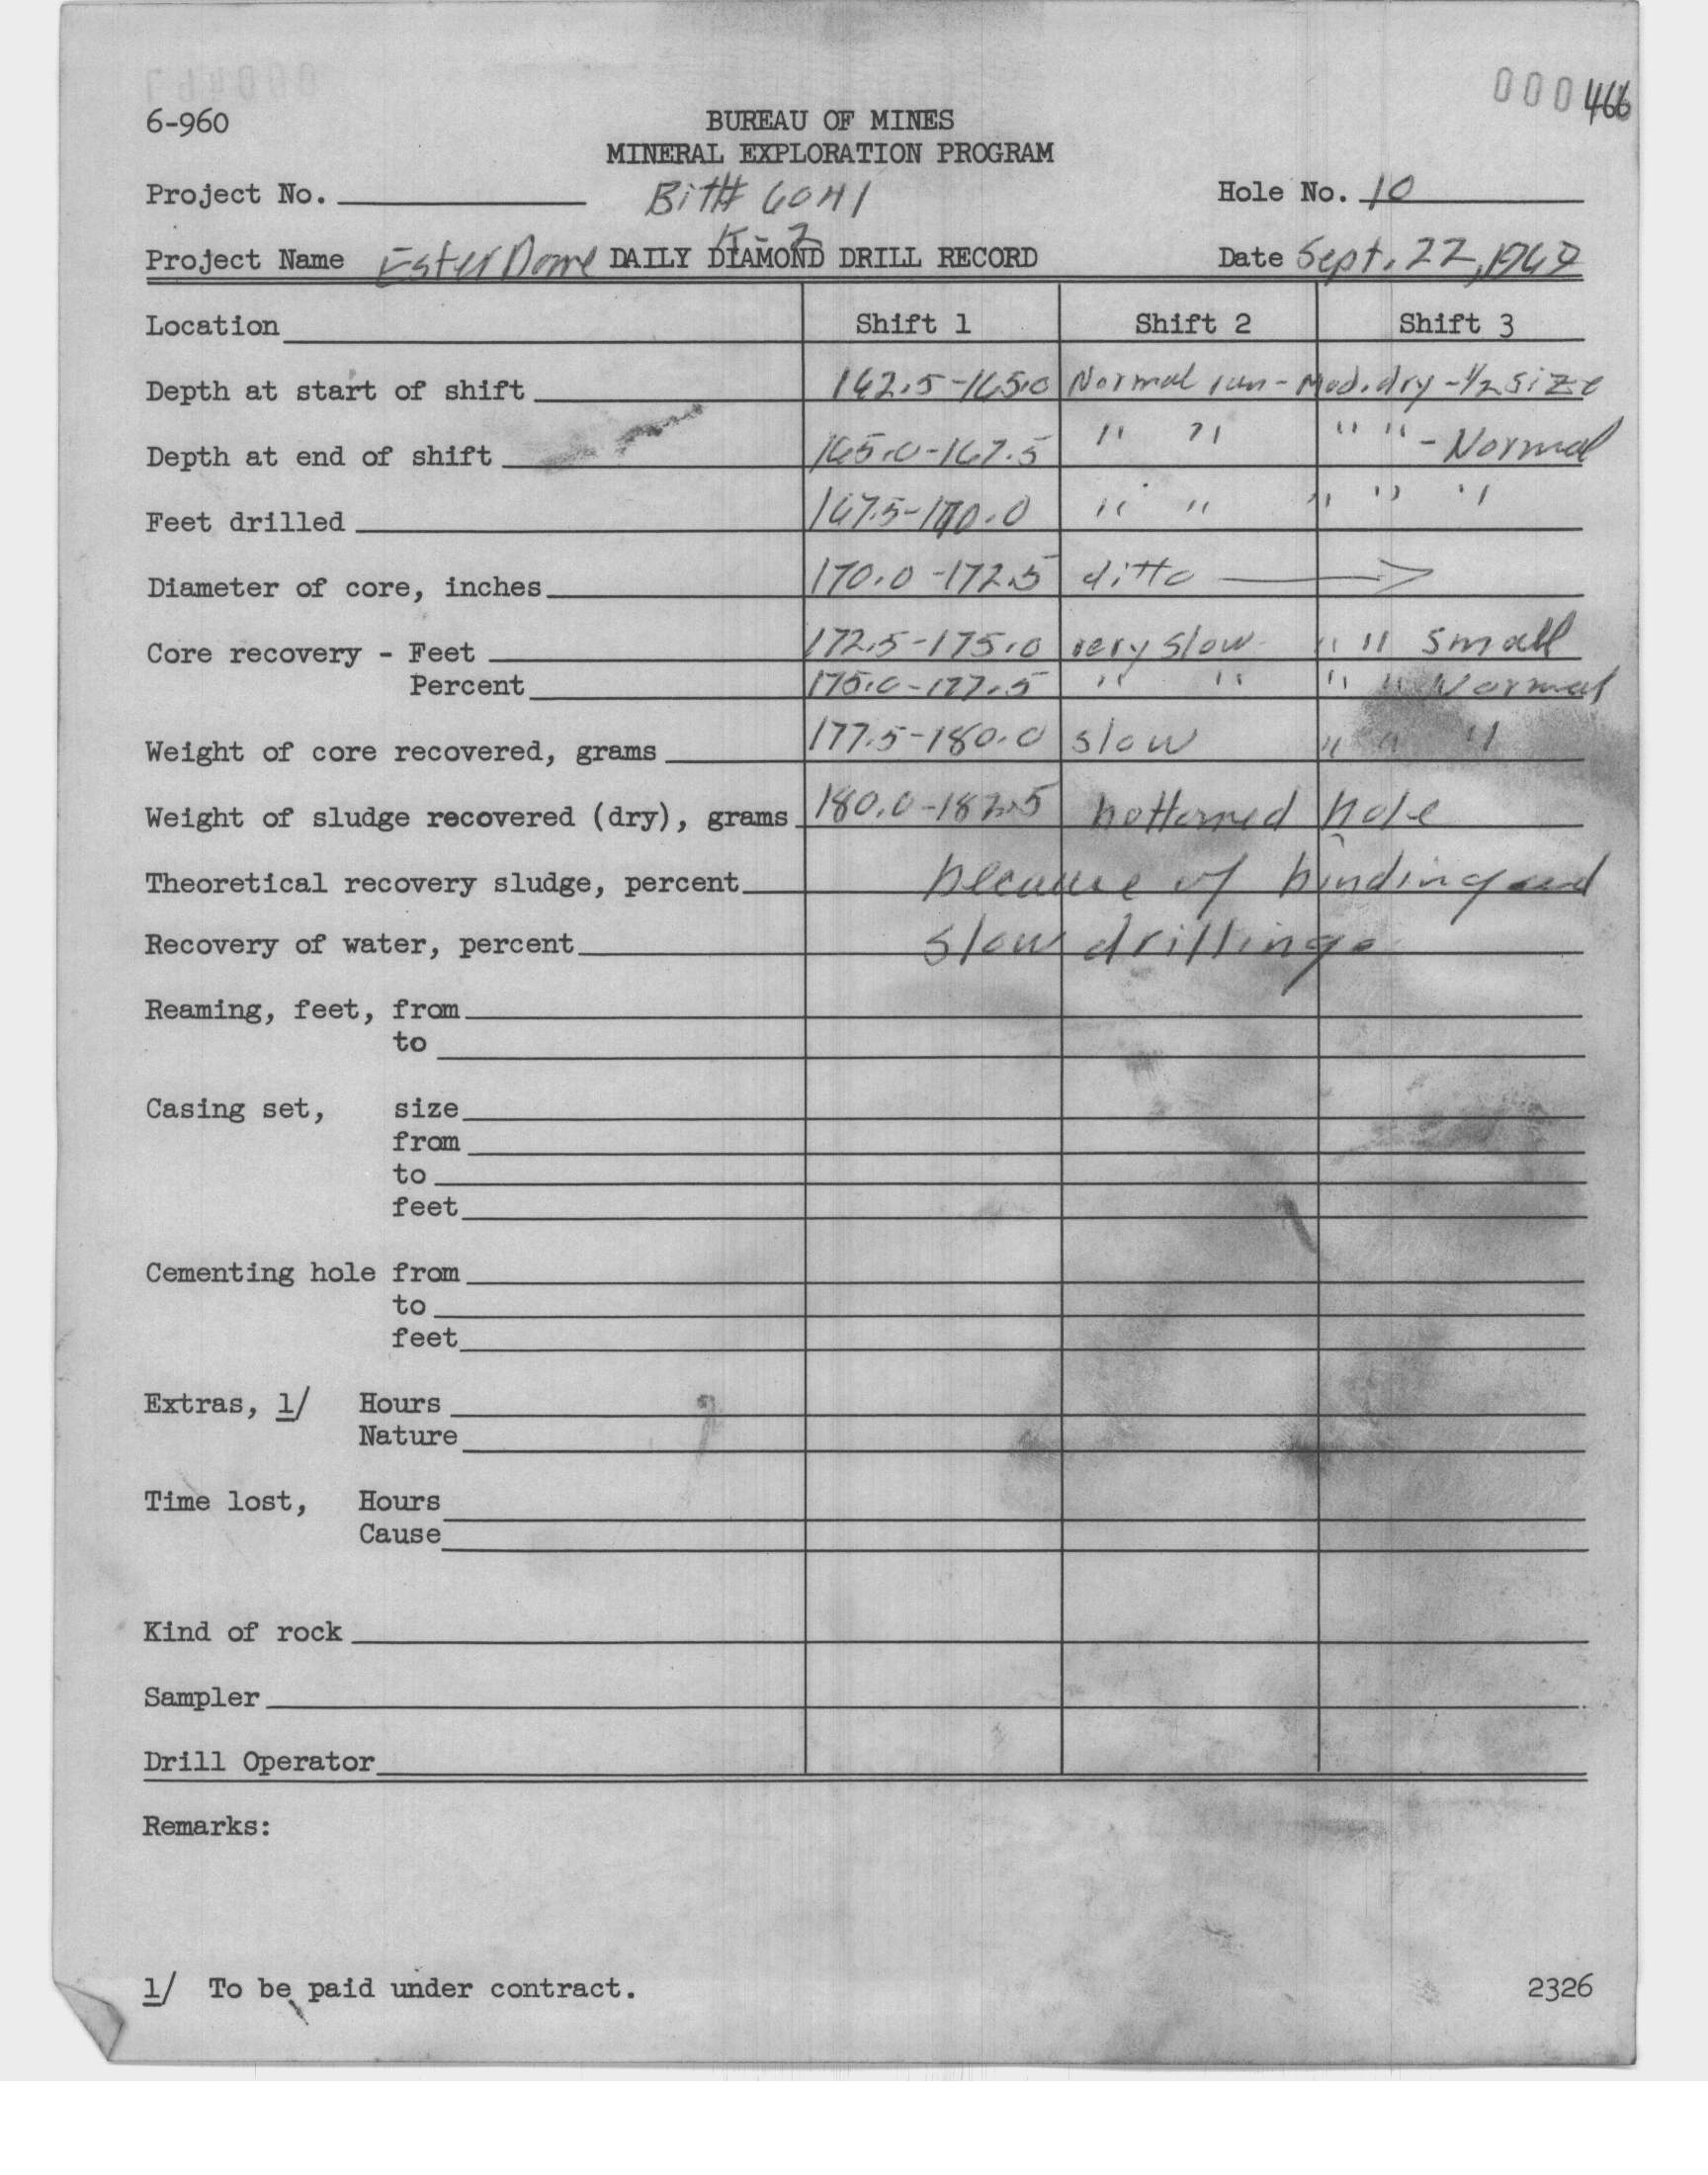 000466
6-960
BUREAU OF MINES
MINERAL EXPLORATION PROGRAM
Project No. Bit# 60H1 Hole No. 10
K-2
Project Name Ester Dome DAILY DIAMOND DRILL RECORD Date Sept. 22, 
Location Shift 1 Shift 2 Shift 3
Depth at start of shift 162.5-165.0 Normal run - Mod. dry - 1/2 size
Depth at end of shift 165.0-167.5 " " " " - Normal
Feet drilled 167.5-170.0 " " " " "
Diameter of core, inches 170.0-172.5 ditto
Core recovery - Feet 172.5-175.0 very slow " " small
Percent 175.0-177.5 " " " " Normal
Weight of core recovered, grams 177.5-180.0 slow " " "
Weight of sludge recovered (dry), grams 180.0-182.5 bottomed hole
Theoretical recovery sludge, percent because of binding and
Recovery of water, percent slow drilling.
Reaming, feet, from
to
Casing set, size
from
to
feet
Cementing hole from
to
feet
Extras, 1/ Hours
Nature
Time lost, Hours
Cause
Kind of rock
Sampler
Drill Operator
Remarks:
1/ To be paid under contract. 2326